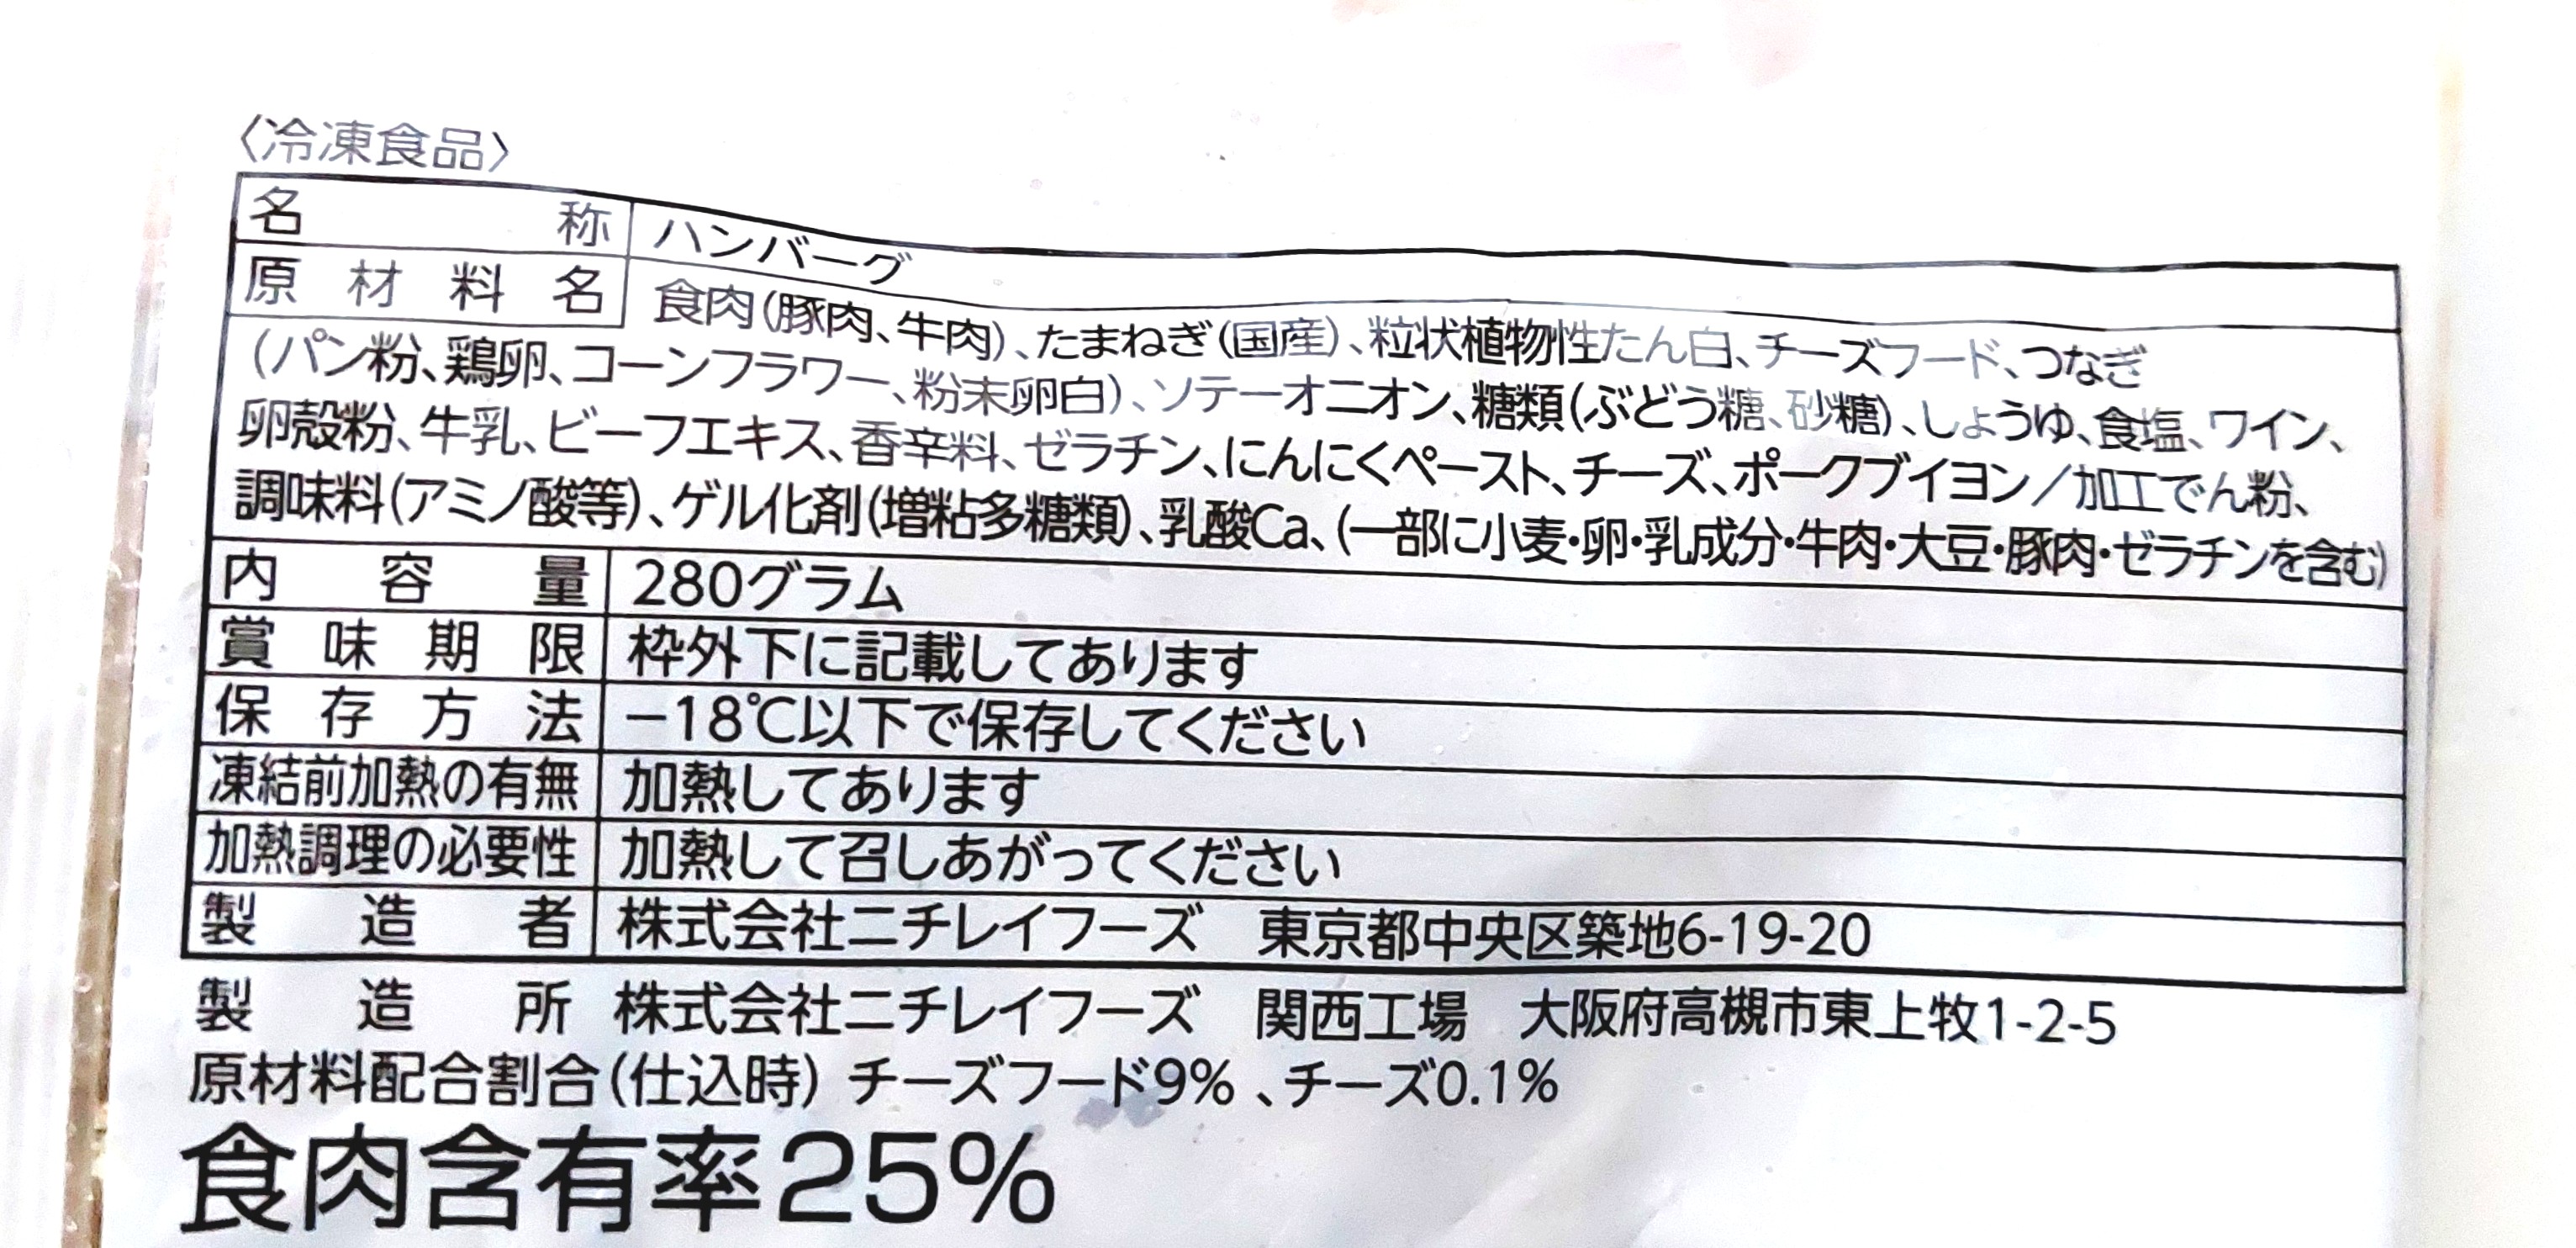 〈冷凍食品〉
名称 ハンバーグ
原材料名 食肉(豚肉、牛肉)、たまねぎ(国産)、粒状植物性たん白、チーズフード、つなぎ
(パン粉、鶏卵、コーンフラワー、粉末卵白)、ソテーオニオン、糖類(ぶどう糖、砂糖)、しょうゆ、食塩、ワイン、
卵殻粉、牛乳、ビーフエキス、香辛料、ゼラチン、にんにくペースト、チーズ、ポークブイヨン／加工でん粉、
調味料(アミノ酸等)、ゲル化剤(増粘多糖類)、乳酸Ca、(一部に小麦・卵・乳成分・牛肉・大豆・豚肉・ゼラチンを含む)
内容量 280グラム
賞味期限 枠外下に記載してあります
保存方法 −18℃以下で保存してください
凍結前加熱の有無 加熱してあります
加熱調理の必要性 加熱して召しあがってください
製造者 株式会社ニチレイフーズ 東京都中央区築地6-19-20
製造所 株式会社ニチレイフーズ 関西工場 大阪府高槻市東上牧1-2-5
原材料配合割合(仕込時) チーズフード9%、チーズ0.1%
食肉含有率25%